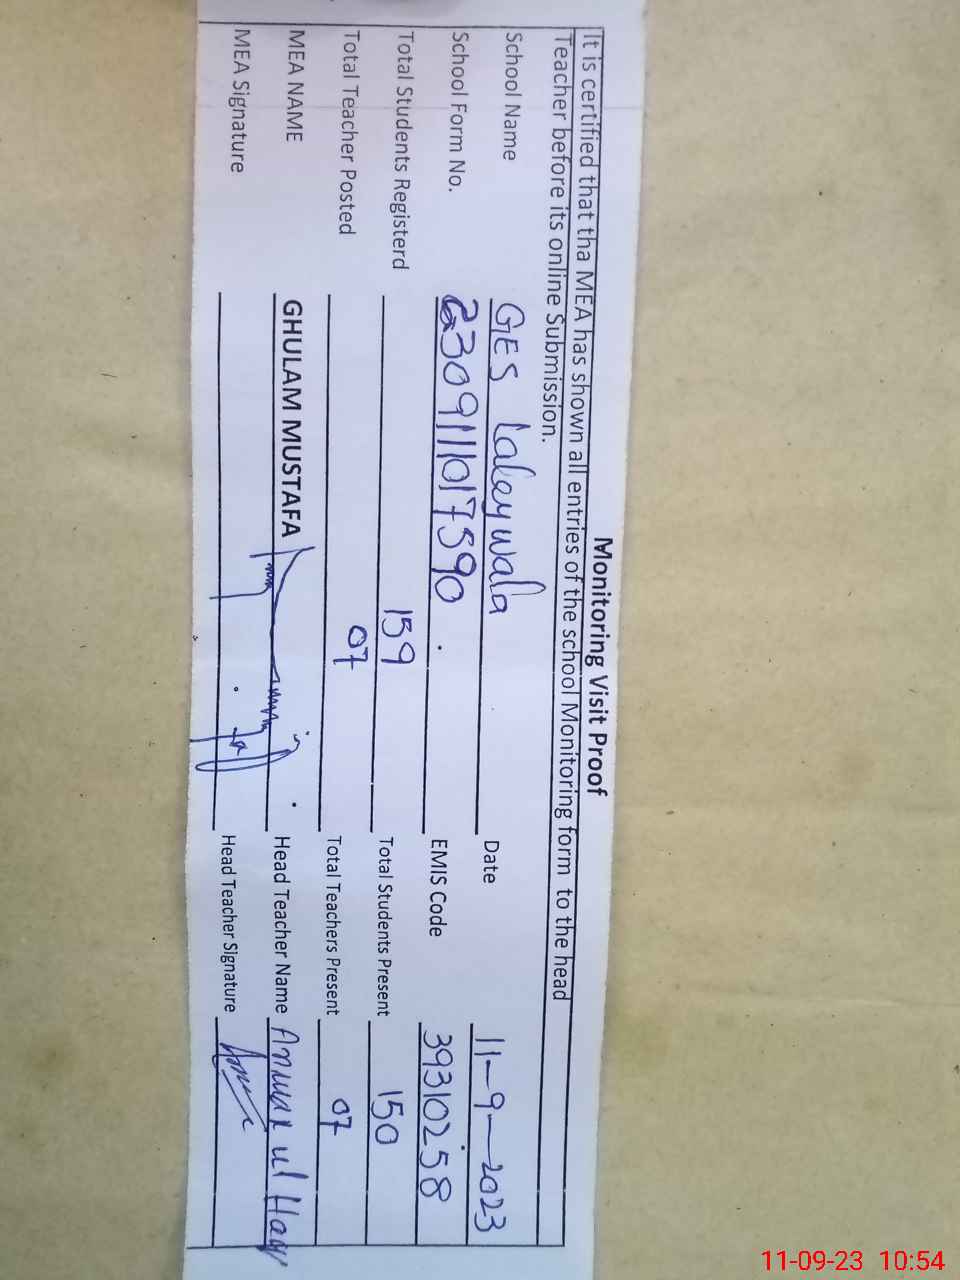 Monitoring Visit Proof
It is certified that tha MEA has shown all entries of the school Monitoring form to the head
Teacher before its online Submission.
School Name GES Laleywala Date 11-9-2023
School Form No. 2309111017590 EMIS Code 39310258
Total Students Registerd 159 Total Students Present 150
Total Teacher Posted 07 Total Teachers Present 07
MEA NAME GHULAM MUSTAFA Head Teacher Name Anwar ul Haq
MEA Signature Head Teacher Signature
11-09-23 10:54